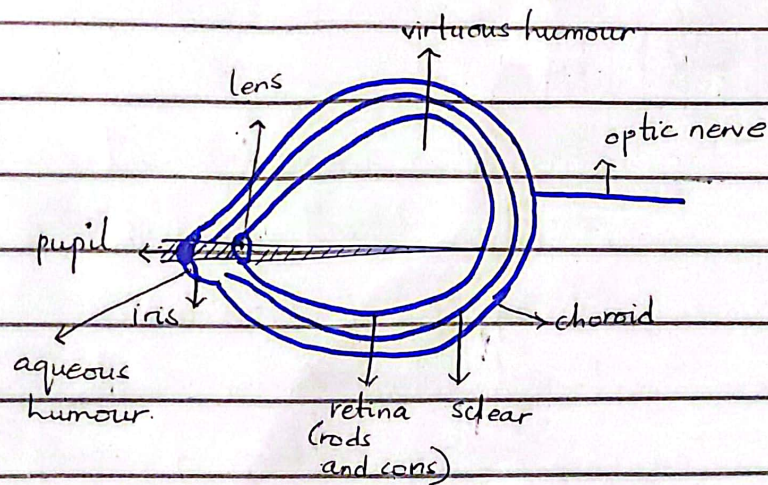 virtuous humour
lens
optic nerve
pupil
iris
choroid
aqueous
humour.
retina
(rods
and cons)
sclear